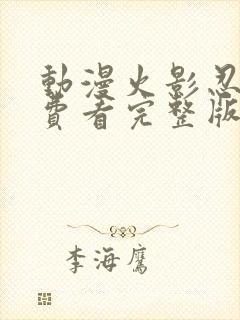 動漫火影忍
費看完整版
李海鷹